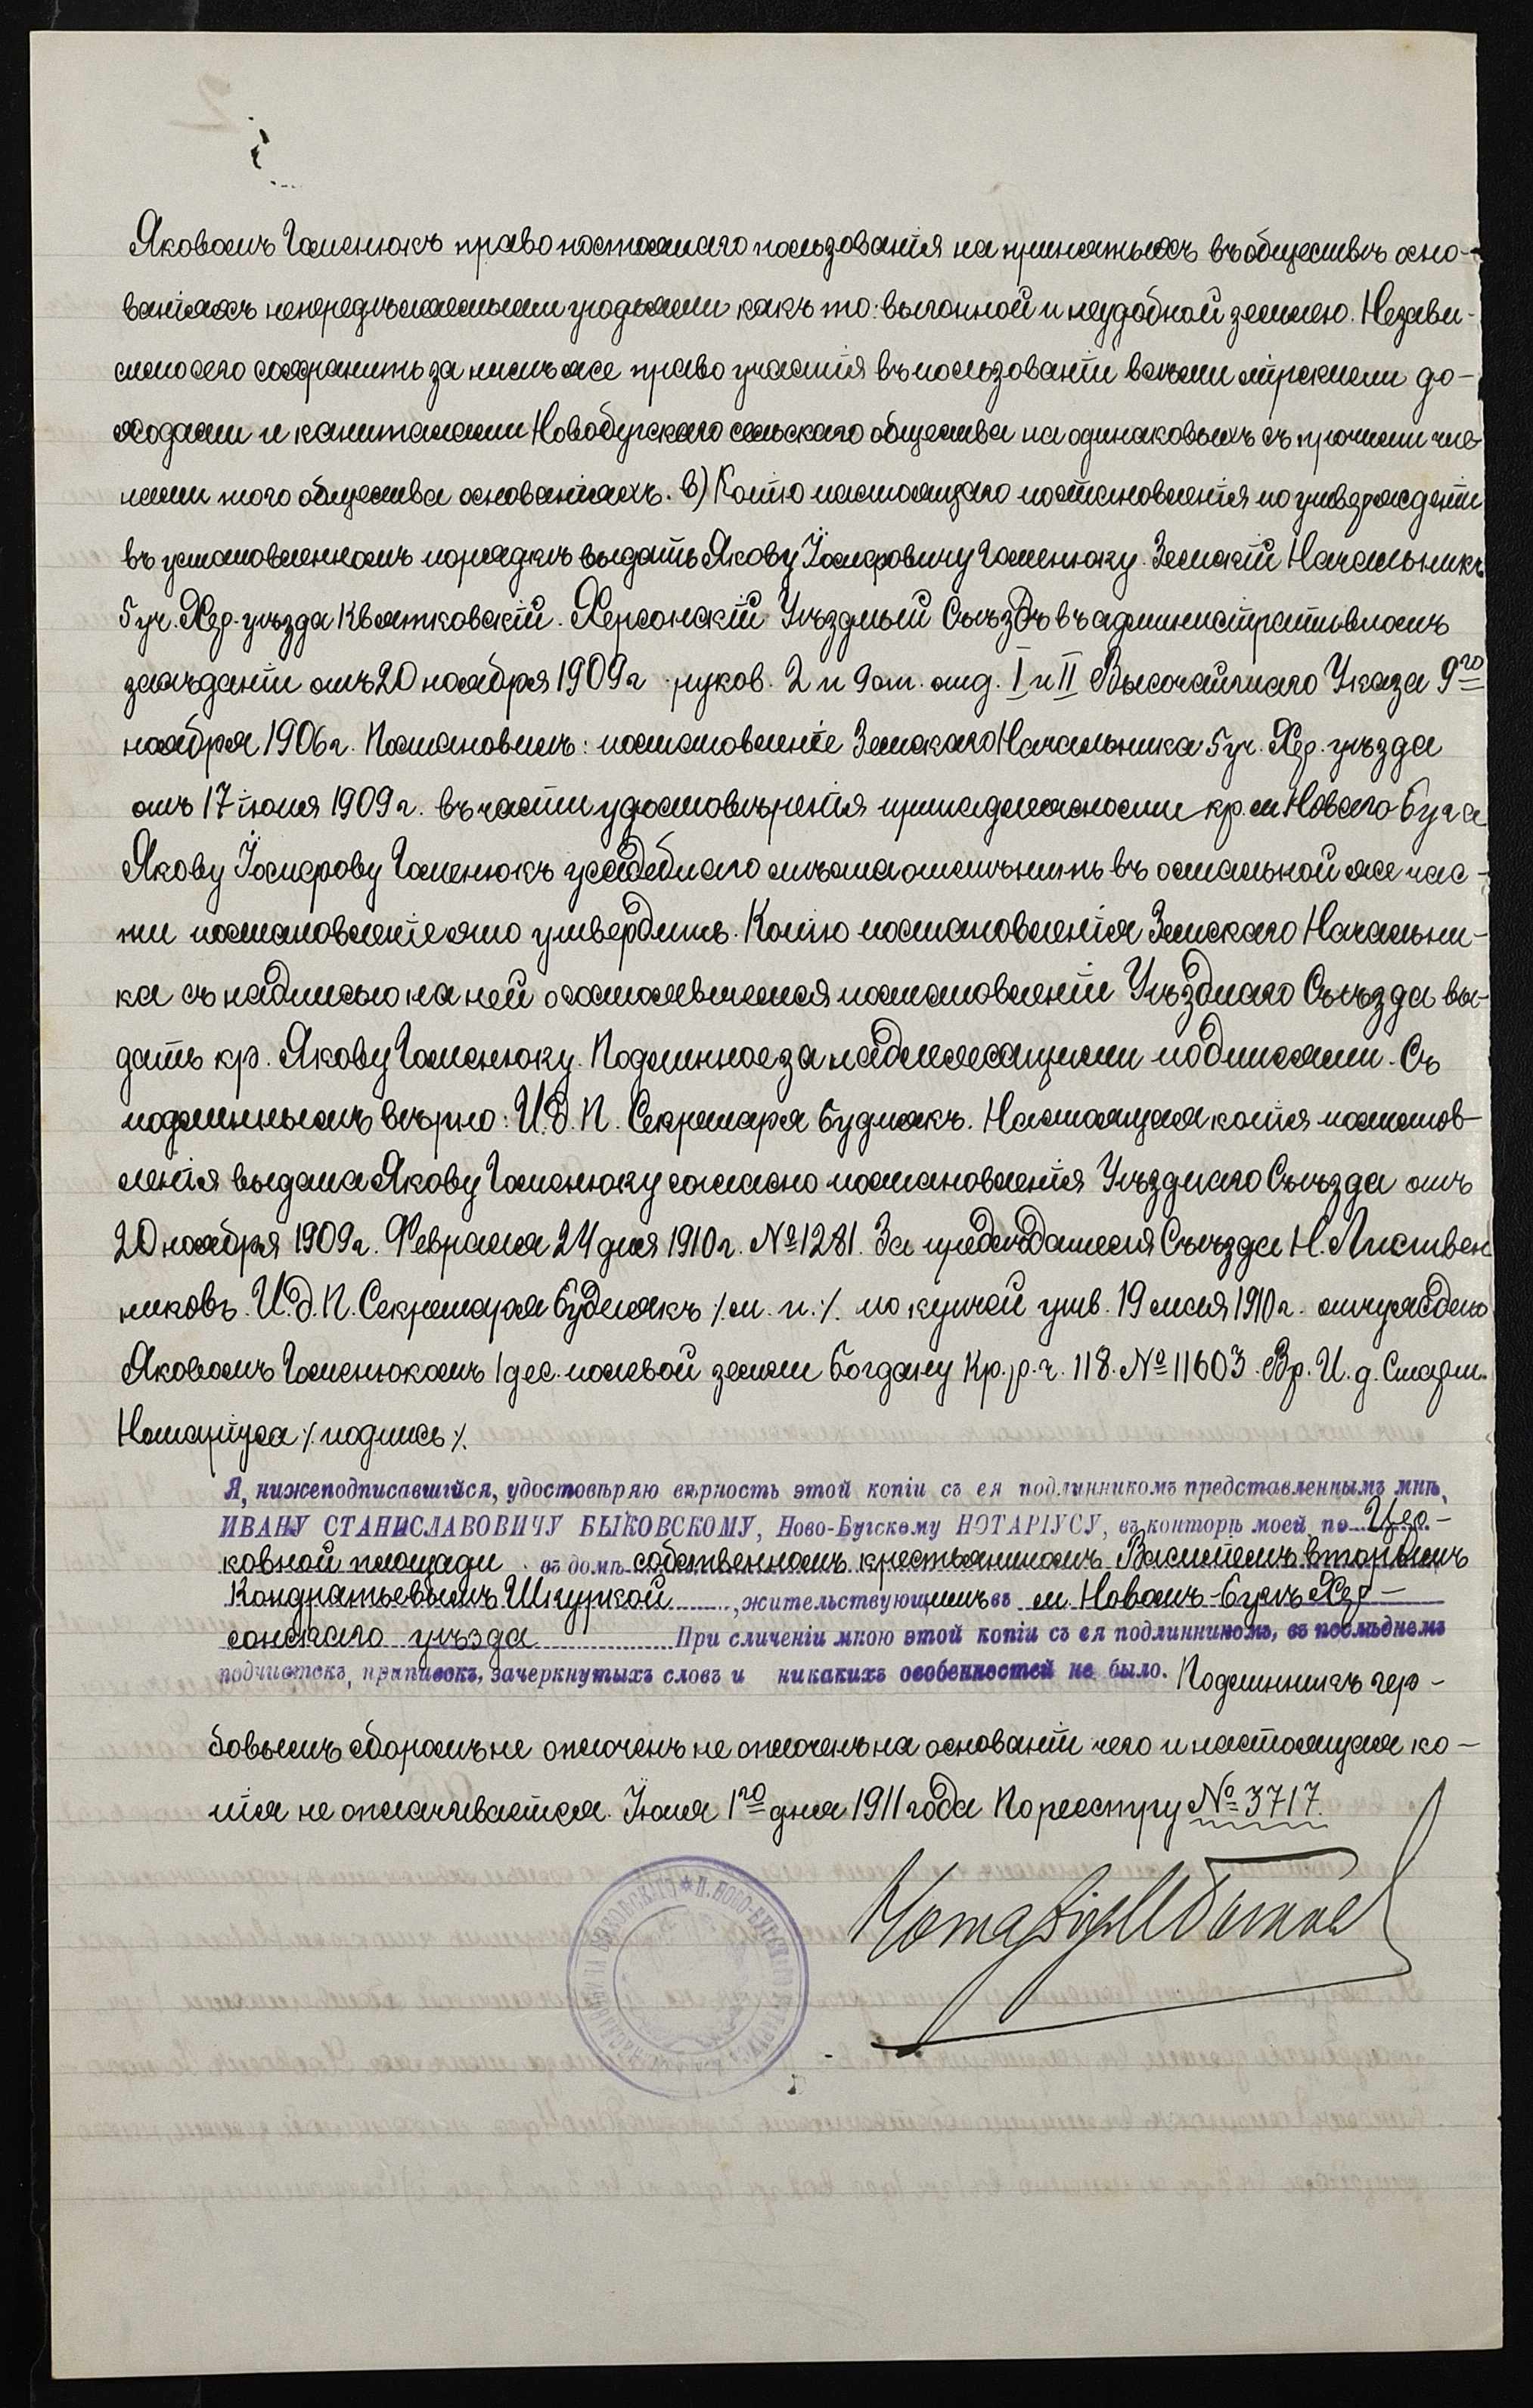 Яковомъ Гоменюкъ право постояннаго пользованія на принятыхъ въ обществѣ осно-
ваніяхъ непередѣляемыми угодьями какъ то: выгонной и неудобной землею. Незави-
симо сего сохранить за нимъ же право участія въ пользованіи всѣми мірскими до-
ходами и капиталами Новобугскаго сельскаго общества на одинаковыхъ съ прочими чле
нами того общества основаніяхъ. в) Копію настоящаго постановленія по утвержденіи
въ установленномъ порядкѣ выдать Якову Іосифовичу Гоменюку. Земскій Начальникъ
5 уч. Хер. уѣзда Квятковскій. Херсонскій Уѣздный Съѣздъ въ административномъ
засѣданіи отъ 20 ноября 1909 г. руков. 2 и 9 ст. отд. I и II Высочайшаго Указа 9го
ноября 1906 г. Постановилъ: постановленіе Земскаго Начальника 5 уч. Хер. уѣзда
отъ 17 іюня 1909 г. въ части удостовѣренія принадлежности кр. м. Новаго-Буга
Якову Іосифову Гоменюкъ усадебнаго мѣста отмѣнить въ остальной же час-
ти постановленіе это утвердить. Копію постановленія Земскаго Начальни-
ка съ надписью на ней о состоявшемся постановленіи Уѣзднаго Съѣзда вы-
дать кр. Якову Гоменюку. Подлинное за надлежащими подписями. Съ
подлиннымъ вѣрно: И. д. П. Секретаря Будякъ. Настоящая копія постанов-
ленія выдана Якову Гоменюку согласно постановленія Уѣзднаго Съѣзда отъ
20 ноября 1909 г. Февраля 24 дня 1910 г. № 1281. За предсѣдателя Съѣзда Н. Листвен
никовъ. И. д. П. Секретаря Будякъ /м. п./. по купчей утв. 19 мая 1910 г. отчуждено
Яковомъ Гоменюкомъ 1 дес. полевой земли Богдану Кр. р. ч. 118. № 11603. Вр. И. д. Старш.
Нотаріуса /подпись/.
Я, нижеподписавшійся, удостовѣряю вѣрность этой копіи съ ея подлинникомъ представленнымъ мнѣ,
ИВАНУ СТАНИСЛАВОВИЧУ БЫКОВСКОМУ, Ново-Бугскому НОТАРІУСУ, въ конторѣ моей по Цер-
ковной площади въ домѣ собственномъ крестьяниномъ Василіемъ вторымъ
Кондратьевымъ Шкуркой, жительствующимъ въ м. Новомъ-Бугѣ Хер-
сонскаго уѣзда При сличеніи мною этой копіи съ ея подлинникомъ, въ послѣднемъ
подчистокъ, приписокъ, зачеркнутыхъ словъ и никакихъ особенностей не было. Подлинникъ гер-
бовымъ сборомъ не оплоченъ не оплоченъ на основаніи чего и настоящая ко-
пія не оплачивается. Іюня 1го дня 1911 года По реестру № 3717.
Нотаріусъ